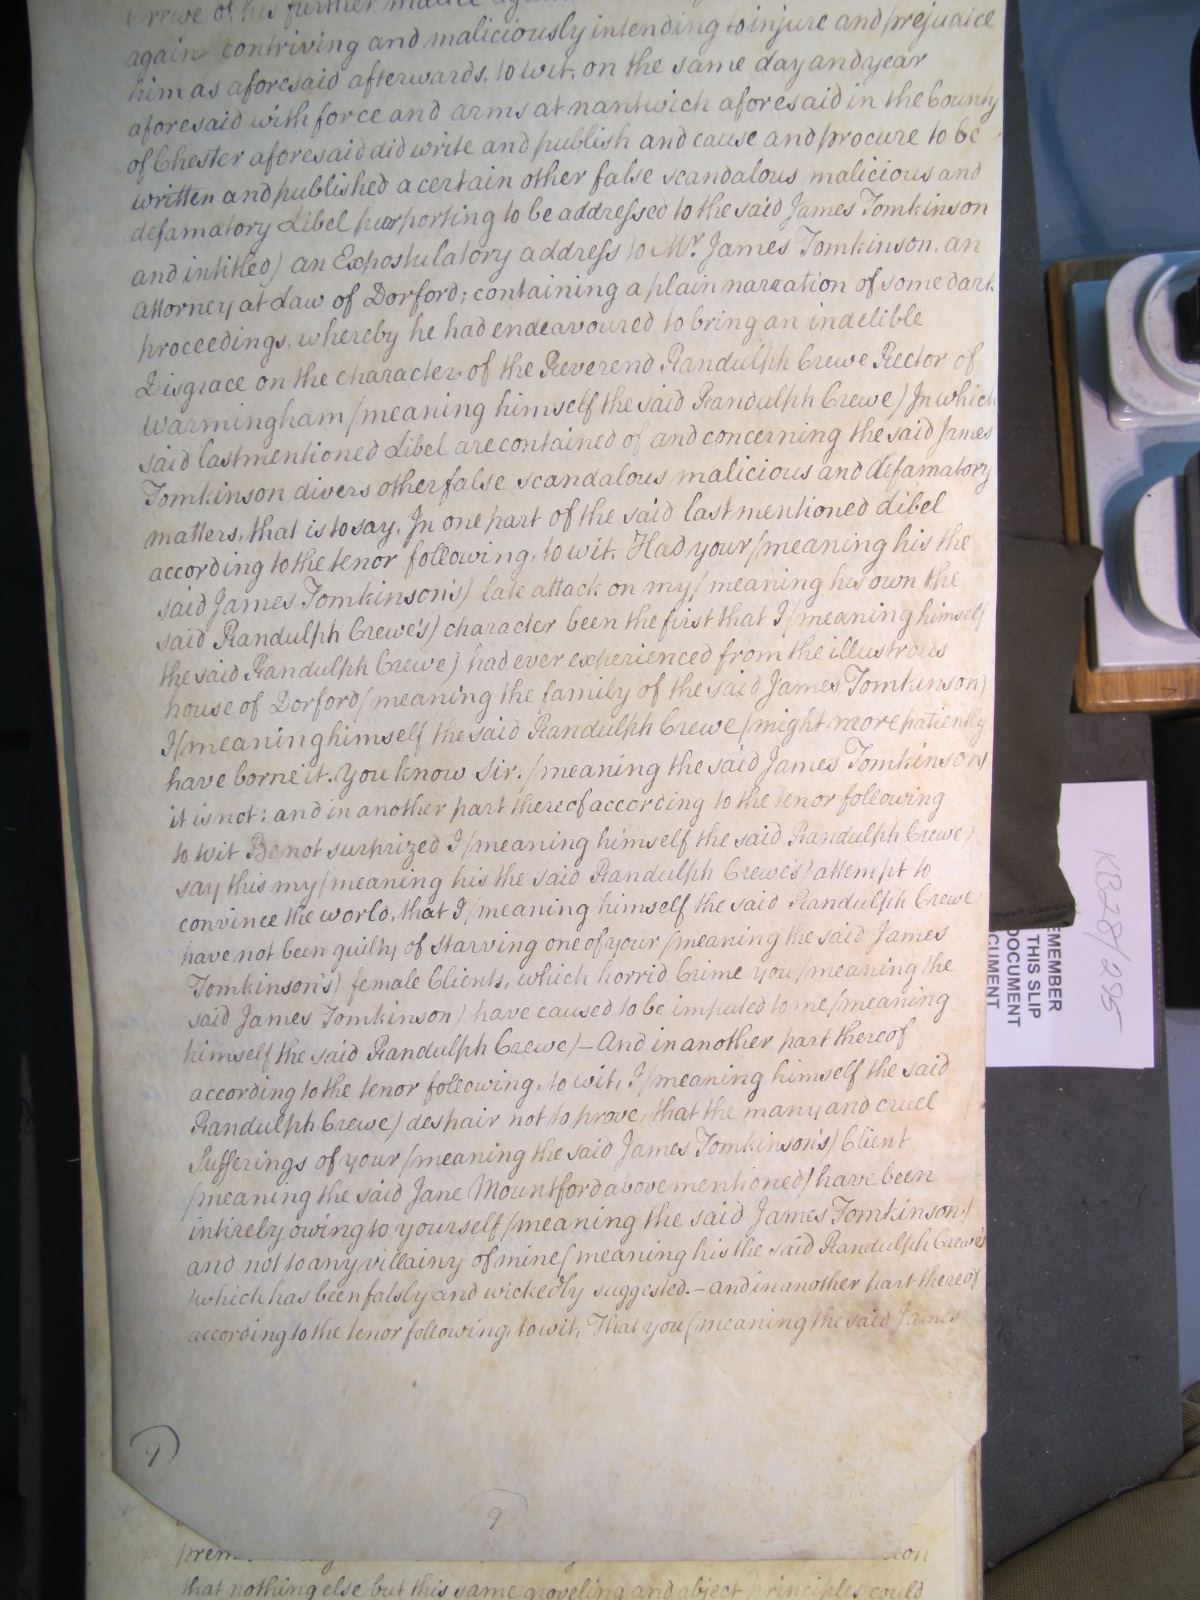 Crewe of his further malice
again contriving and maliciously intending to injure and prejudice
him as aforesaid afterwards, to wit, on the same day and year
aforesaid with force and arms at nantwich aforesaid in the County
of Chester aforesaid did write and publish and cause and procure to be
written and published a certain other false scandalous malicious and
defamatory Libel purporting to be addressed to the said James Tomkinson
and intitled) an Expostulatory address to Mr. James Tomkinson, an
Attorney at Law of Dorford; containing a plain narration of some dark
proceedings, whereby he had endeavoured to bring an indelible
Disgrace on the character of the Reverend Randulph Crewe Rector of
Warmingham /meaning himself the said Randulph Crewe) In which
said lastmentioned Libel are contained of and concerning the said James
Tomkinson divers other false scandalous malicious and defamatory
matters, that is to say, In one part of the said last mentioned Libel
according to the tenor following, to wit, Had your /meaning his the
said James Tomkinson's) late attack on my /meaning his own the
said Randulph Crewe's) character been the first that I /meaning himself
the said Randulph Crewe) had ever experienced from the illustrous
house of Dorford /meaning the family of the said James Tomkinson)
I /meaning himself the said Randulph Crewe /might more patiently
have borne it. You know Sir. /meaning the said James Tomkinson
it is not: and in another part thereof according to the tenor following
to wit Be not surprized I /meaning himself the said Randulph Crewe)
say this my /meaning his the said Randulph Crewe's) attempt to
convince the world, that I /meaning himself the said Randulph Crewe)
have not been guilty of starving one of your /meaning the said James
Tomkinson's) female Clients, which horrid Crime you /meaning the
said James Tomkinson) have caused to be imputed to me /meaning
himself the said Randulph Crewe) – And in another part thereof
according to the tenor following, to wit, I /meaning himself the said
Randulph Crewe) despair not to prove, that the many and cruel
Sufferings of your /meaning the said James Tomkinson's) Client
/meaning the said Jane Mountford abovementioned) have been
intirely owing to yourself /meaning the said James Tomkinson)
and not to any villainy of mine /meaning his the said Randulph Crewe's
which has been falsly and wickedly suggested. – and in another part thereof
according to the tenor following, to wit, That you (meaning the said James
9
that nothing else but this same groveling and abject principles could
KB28/295
EMEMBER
THIS SLIP
DOCUMENT
CUMENT